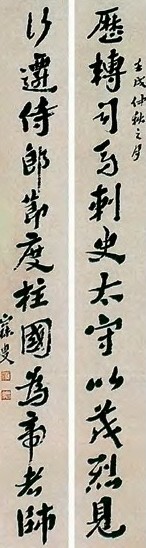 壬戌仲秋之月
歷轉司馬刺史太守以茂烈見
遷侍郎節度柱國為帝者師
寐叟